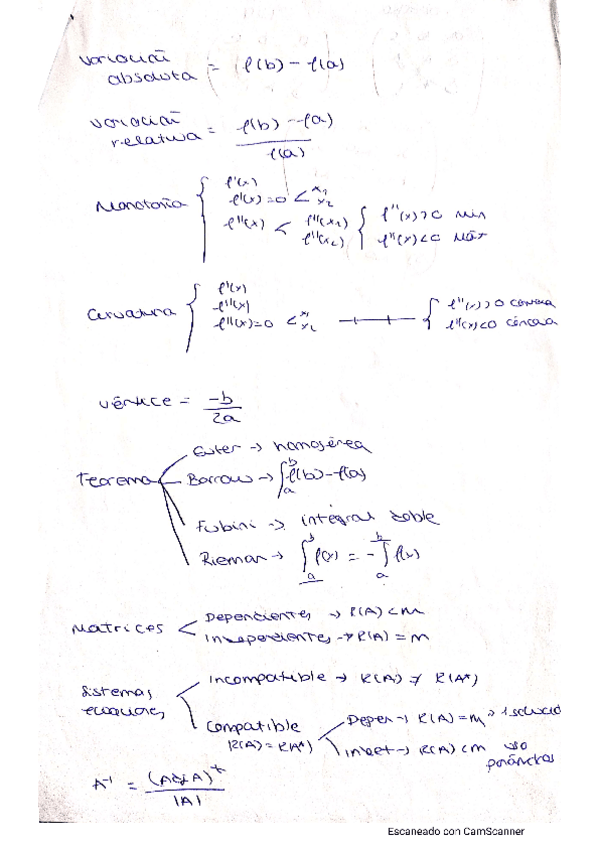 variación absoluta = f(b) - f(a)
variación relativa = f(b) - f(a) / f(a)
Monotonía { f'(x)
f'(x) = 0 < x1 x2
f''(x) < f''(x1) f''(x2) { f''(x) > 0 Min
f''(x) < 0 Máx
Curvatura { f'(x)
f''(x)
f''(x) = 0 < x1 x2 { f''(x) > 0
f''(x) < 0
Vértice = -b / 2a
Teorema
Euler → homogénea
Barrow → ∫ₐᵇ f(b) - f(a)
Fubini → integral doble
Rieman → ∫ₐᵇ f(x) = - ∫ₐᵇ f(x)
Matrices < Dependientes → R(A) < m
Independientes → R(A) = m
Sistemas ecuaciones
Incompatible → R(A) ≠ R(A*)
Compatible R(A) = R(A*)
Deter → R(A) = m → 1 solución
Indet → R(A) < m uso parámetros
A⁻¹ = (Adj A)ᵗ / |A|
Escaneado con CamScanner